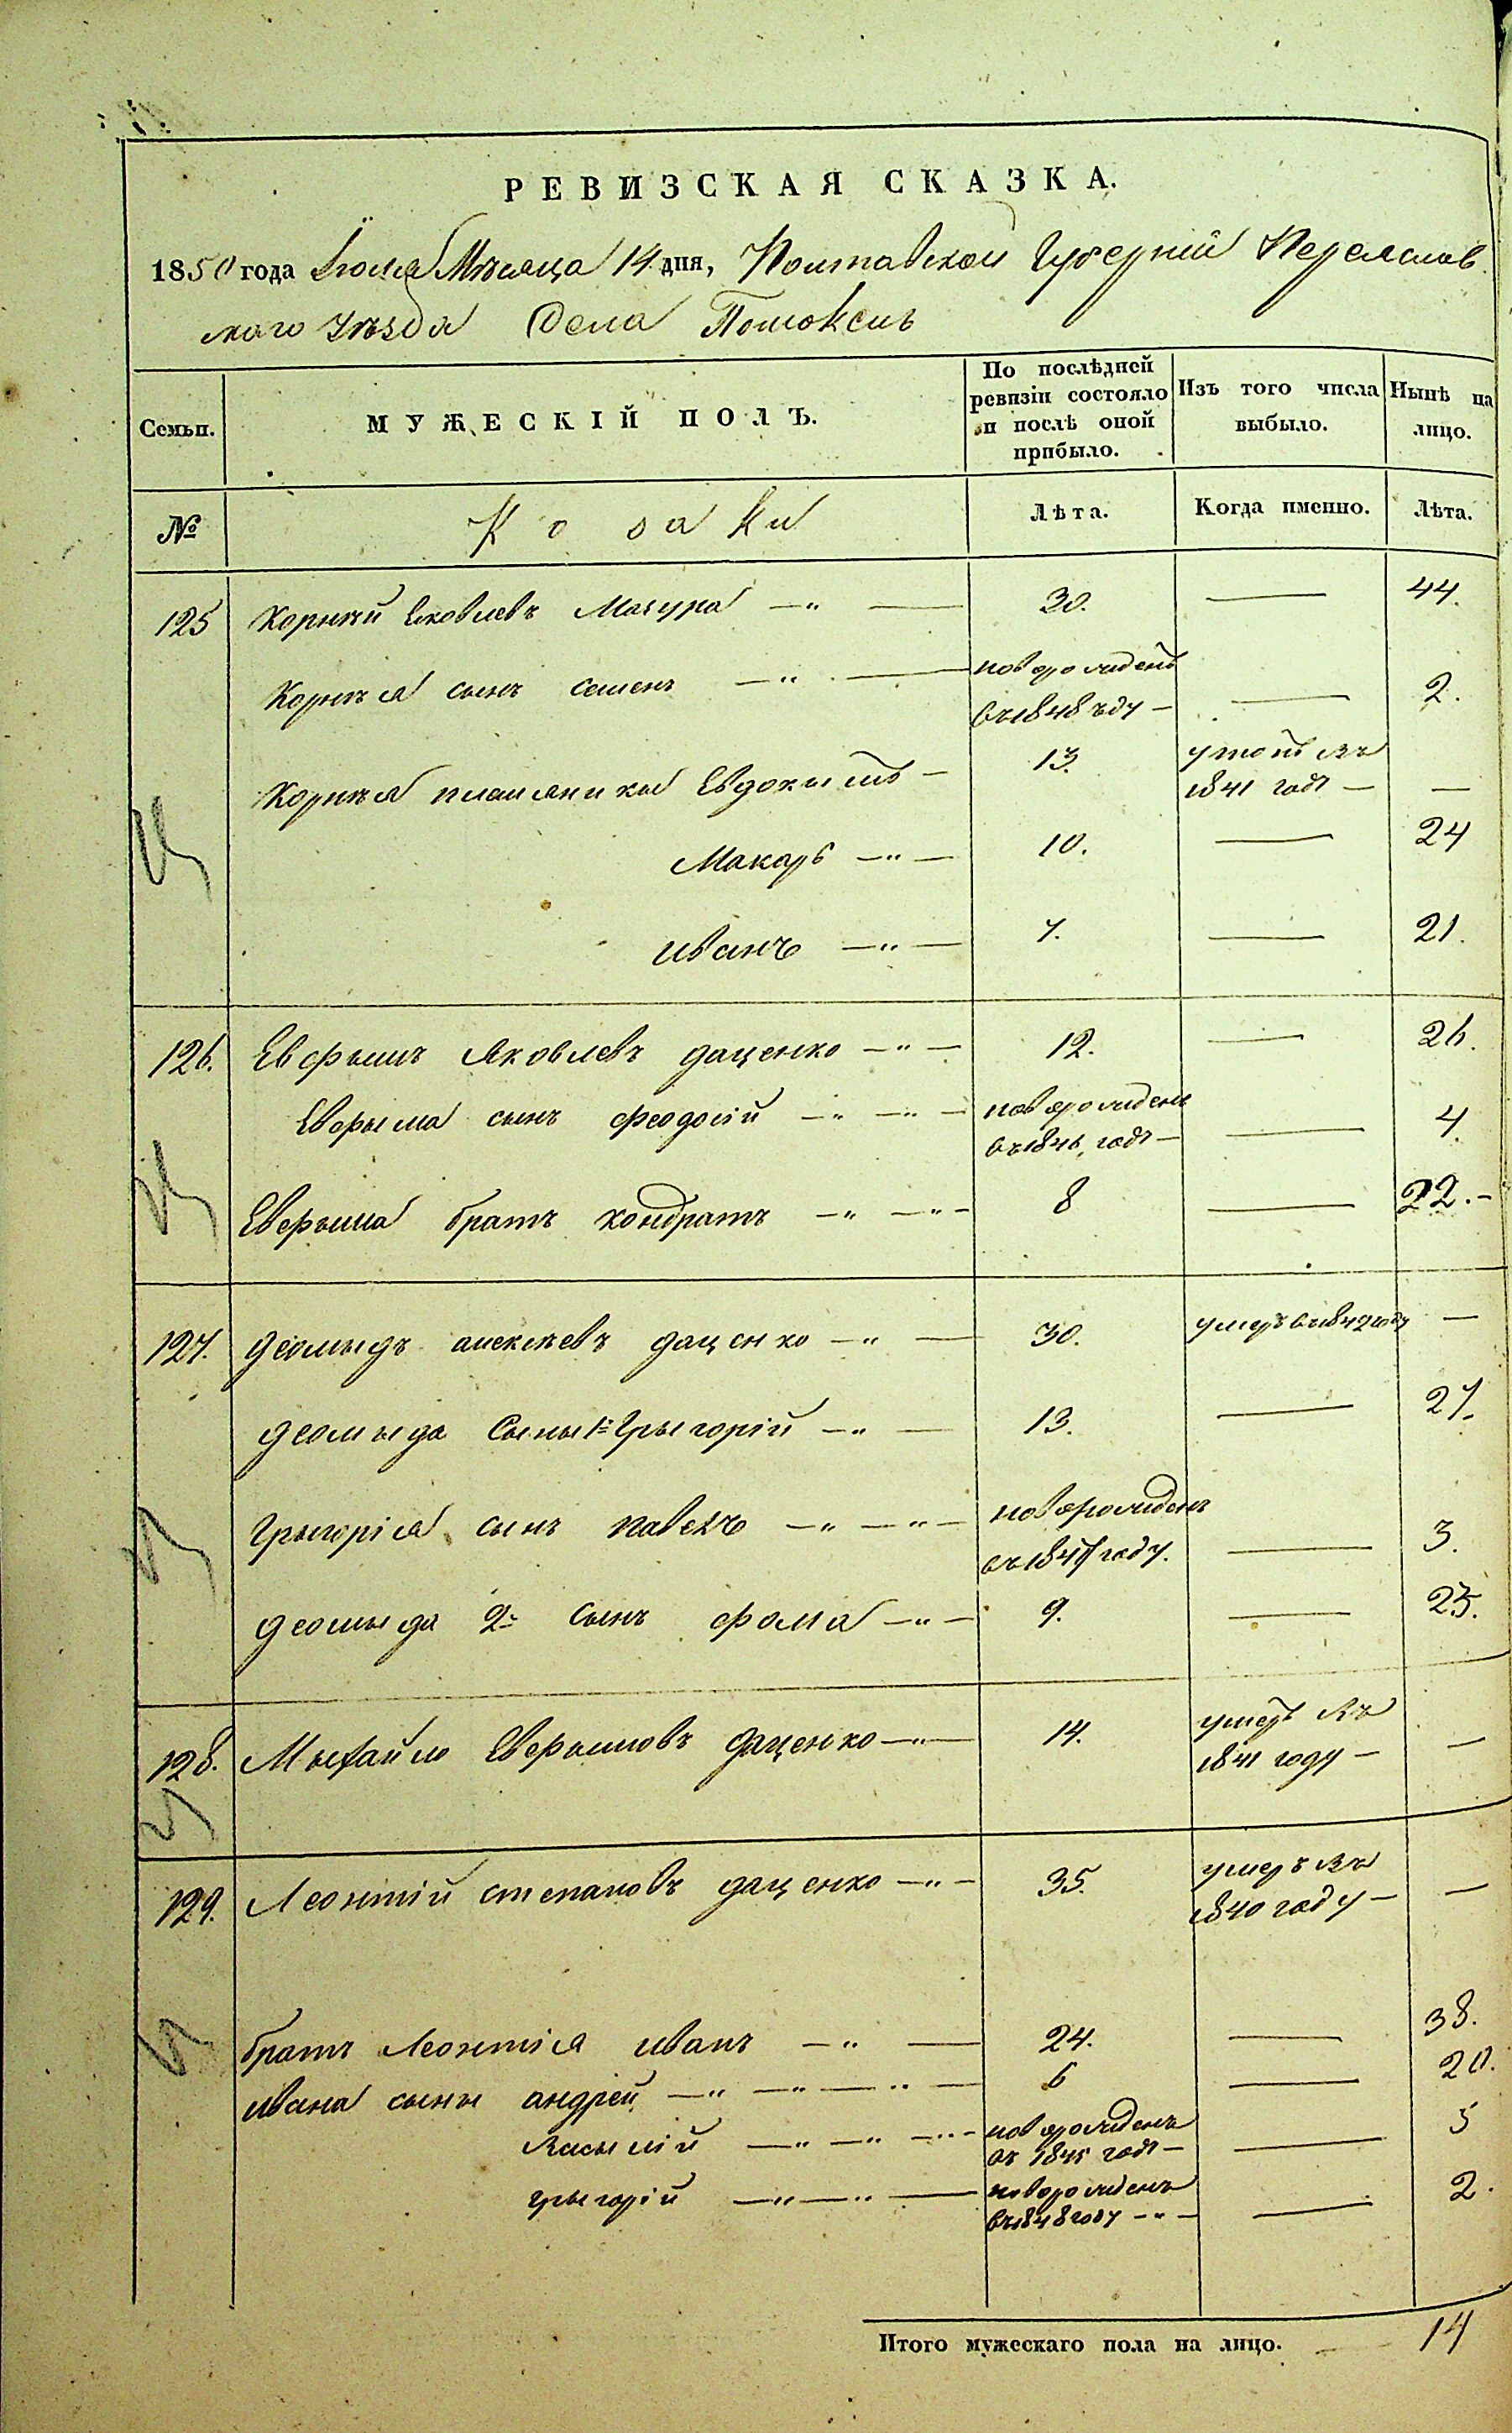 РЕВИЗСКАЯ СКАЗКА.
1850 года Іюля Мѣсяца 14 дня, Полтавской Губерніи Переяслав
скаго Уѣзда Села
Семьи. МУЖЕСКІЙ ПОЛЪ. По послѣдней ревизіи состояло и послѣ оной прибыло. Изъ того числа выбыло. Нынѣ на лицо.
№ Козаки Лѣта. Когда именно. Лѣта.
125 Корнѣй Яковлевъ Мачура —"— 30. — 44.
Корнѣя сынъ семенъ —"— новорожденъ — 2.
въ 1848 году —
Корнѣя племяники Евдокымъ — 13. въ —
1841 годѣ —
Макаръ —"— 10. — 24
иванъ —"— 7. — 21.
126. Евфымъ Яковлевъ даценко —"— 12. — 26.
Евфыма сынъ феодосій —"—"— новорожденъ — 4.
въ 1846 годѣ —
Евфыма братъ кондратъ —"—"— 8 — 22.-
127. деомыдъ алексѣевъ даценко —"— 30. умеръ въ 1842 году —
деомыда Сыны 1й Грыгорій —"— 13. — 27.
Грыгорія сынъ павелъ —"—"— новорожденъ — 3.
въ 1847 году.
деомыда 2й сынъ фома —"— 9. — 23.
128. Мыхайло Евфымовъ даценко —"— 14. умеръ въ —
1841 году —
129. Леонтій степановъ даценко —"— 35. умеръ въ —
1840 году —
братъ Леонтія иванъ —"— 24. — 38.
ивана сыны андрей —"—"—"— 6 — 20.
Васылій —"—"—"- новорожденъ — 5
въ 1845 годѣ —
грыгорій —"—"— новорожденъ — 2.
въ 1848 году -"-
Итого мужескаго пола на лицо. — 14